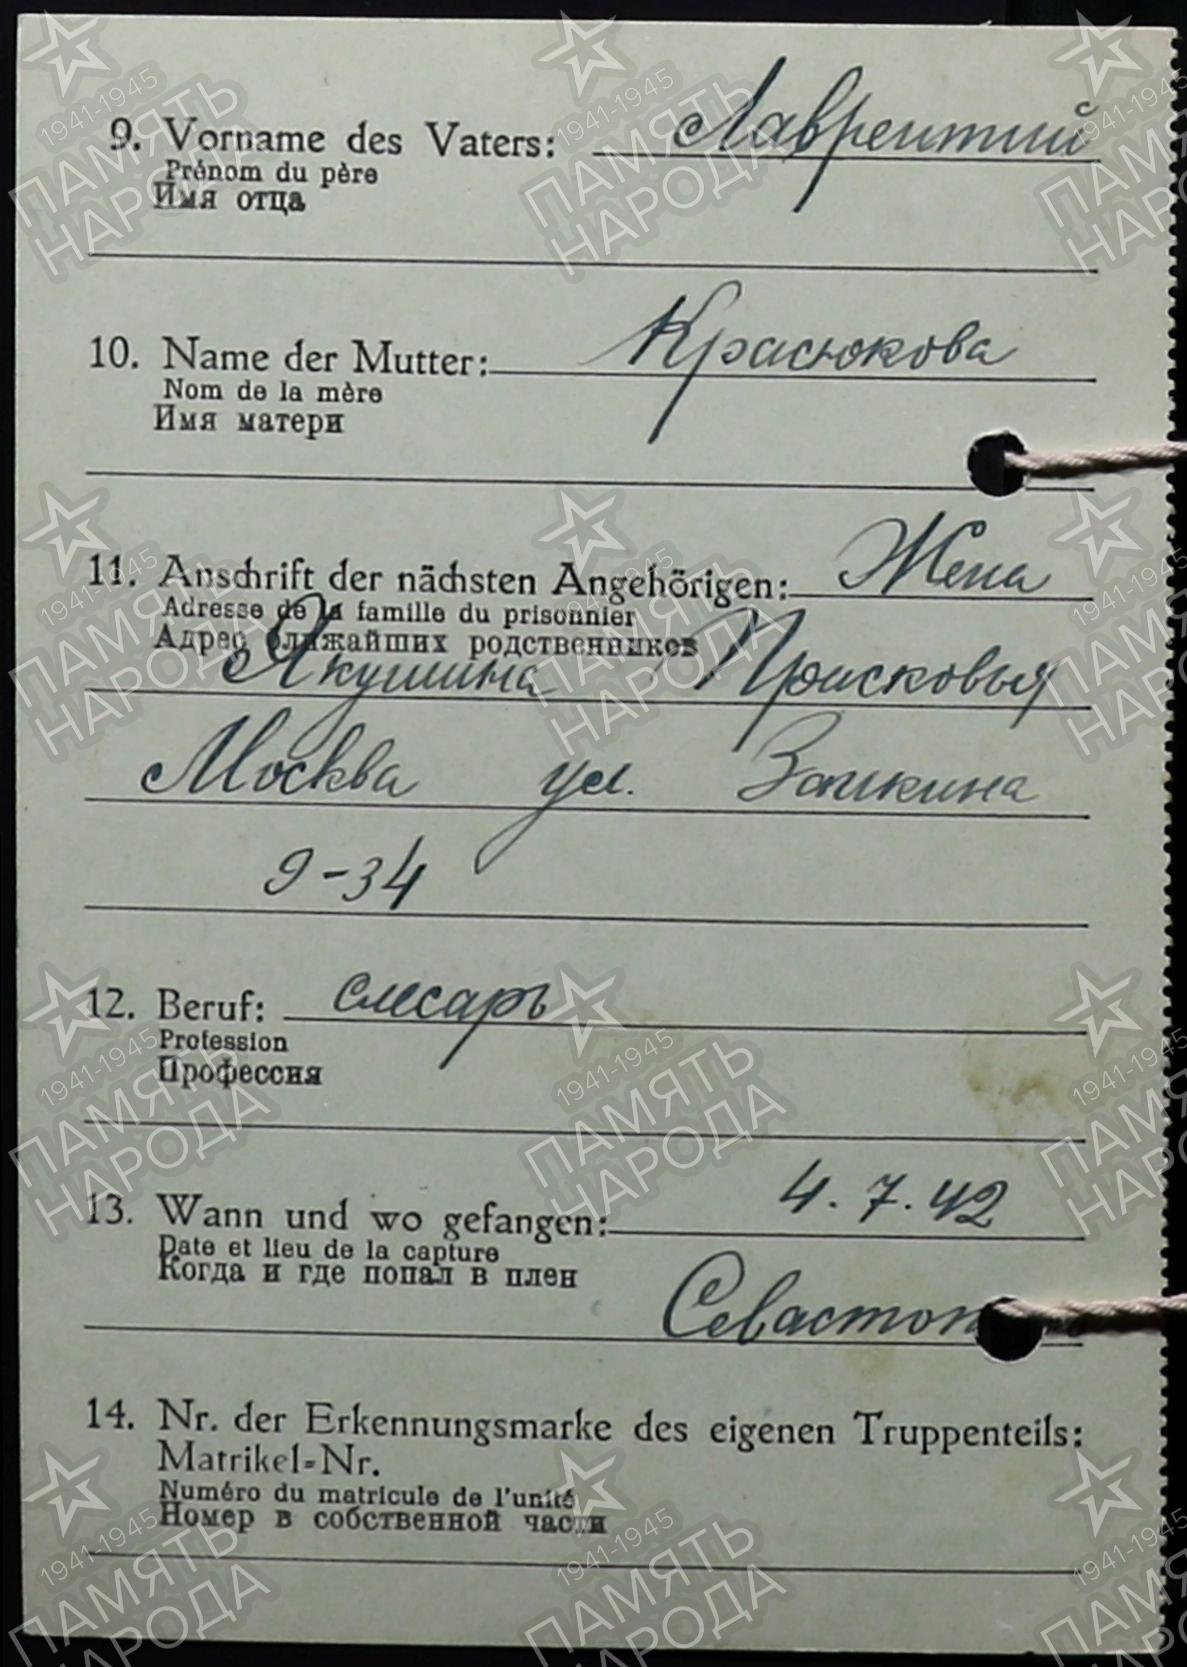 9. Vorname des Vaters: Лаврентий
Prénom du père
Имя отца
10. Name der Mutter: Красюкова
Nom de la mère
Имя матери
11. Anschrift der nächsten Angehörigen: Жена
Adresse de la famille du prisonnier
Адрес ближайших родственников
Якушина Прасковья
Москва ул.
9-34
12. Beruf: слесарь
Profession
Профессия
13. Wann und wo gefangen: 4.7.42
Date et lieu de la capture
Когда и где попал в плен
Севастоп
14. Nr. der Erkennungsmarke des eigenen Truppenteils:
Matrikel-Nr.
Numéro du matricule de l'unité
Номер в собственной части
1941-1945
ПАМЯТЬ
НАРОДА